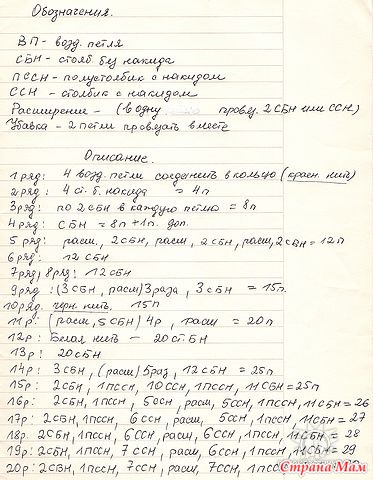 Обозначения.
ВП - возд. петля
СБН - столб. без накида
ПССН - полустолбик с накидом
ССН - столбик с накидом
Расширение - (в одну провяз. 2 СБН или ССН)
Убавка - 2 петли провязать вместе
Описание.
1 ряд: 4 возд. петли соединить в кольцо (красн. нить)
2 ряд: 4 ст. б. накида = 4п
3 ряд: по 2 СБН в каждую петлю = 8п
4 ряд: СБН = 8п + 1п. доп.
5 ряд: расш, 2СБН, расш, 2СБН, расш, 2СБН = 12п
6 ряд: 12 СБН
7 ряд, 8 ряд: 12 СБН
9 ряд: (3 СБН, расш) 3 раза, 3 СБН = 15п.
10 ряд. черн. нить. 15п
11р: (расш, 5 СБН) 4р, расш = 20п
12р: Белая нить - 20 ст. БН
13р: 20 СБН
14р: 3 СБН, (расш) 5 раз, 12 СБН = 25п
15р: 2СБН, 1ПССН, 10 ССН, 1ПССН, 11 СБН = 25п
16р: 2СБН, 1ПССН, 5ССН, расш, 5ССН, 1ПССН, 11СБН = 26
17р: 2СБН, 1ПССН, 6ССН, расш, 5ССН, 1ПССН, 11СБН = 27
18р: 2СБН, 1ПССН, 6ССН, расш, 6ССН, 1ПССН, 11СБН = 28
19р: 2СБН, 1ПССН, 7ССН, расш, 6ССН, 1ПССН, 11СБН = 29
20р: 2СБН, 1ПССН, 7ССН, расш, 7ССН, 1ПССН,
Страна Мам